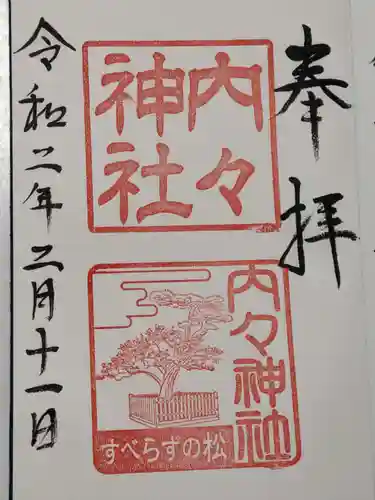 奉拝
内々
神社
内々神社
すべらずの松
令和二年二月十一日